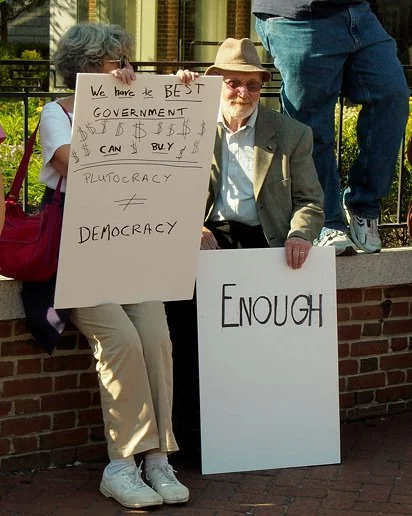 We have BEST
GOVERNMENT
$ $ $ $ $ $ $ $
$ $ CAN $ BUY $ $
PLUTOCRACY
≠
DEMOCRACY
ENOUGH